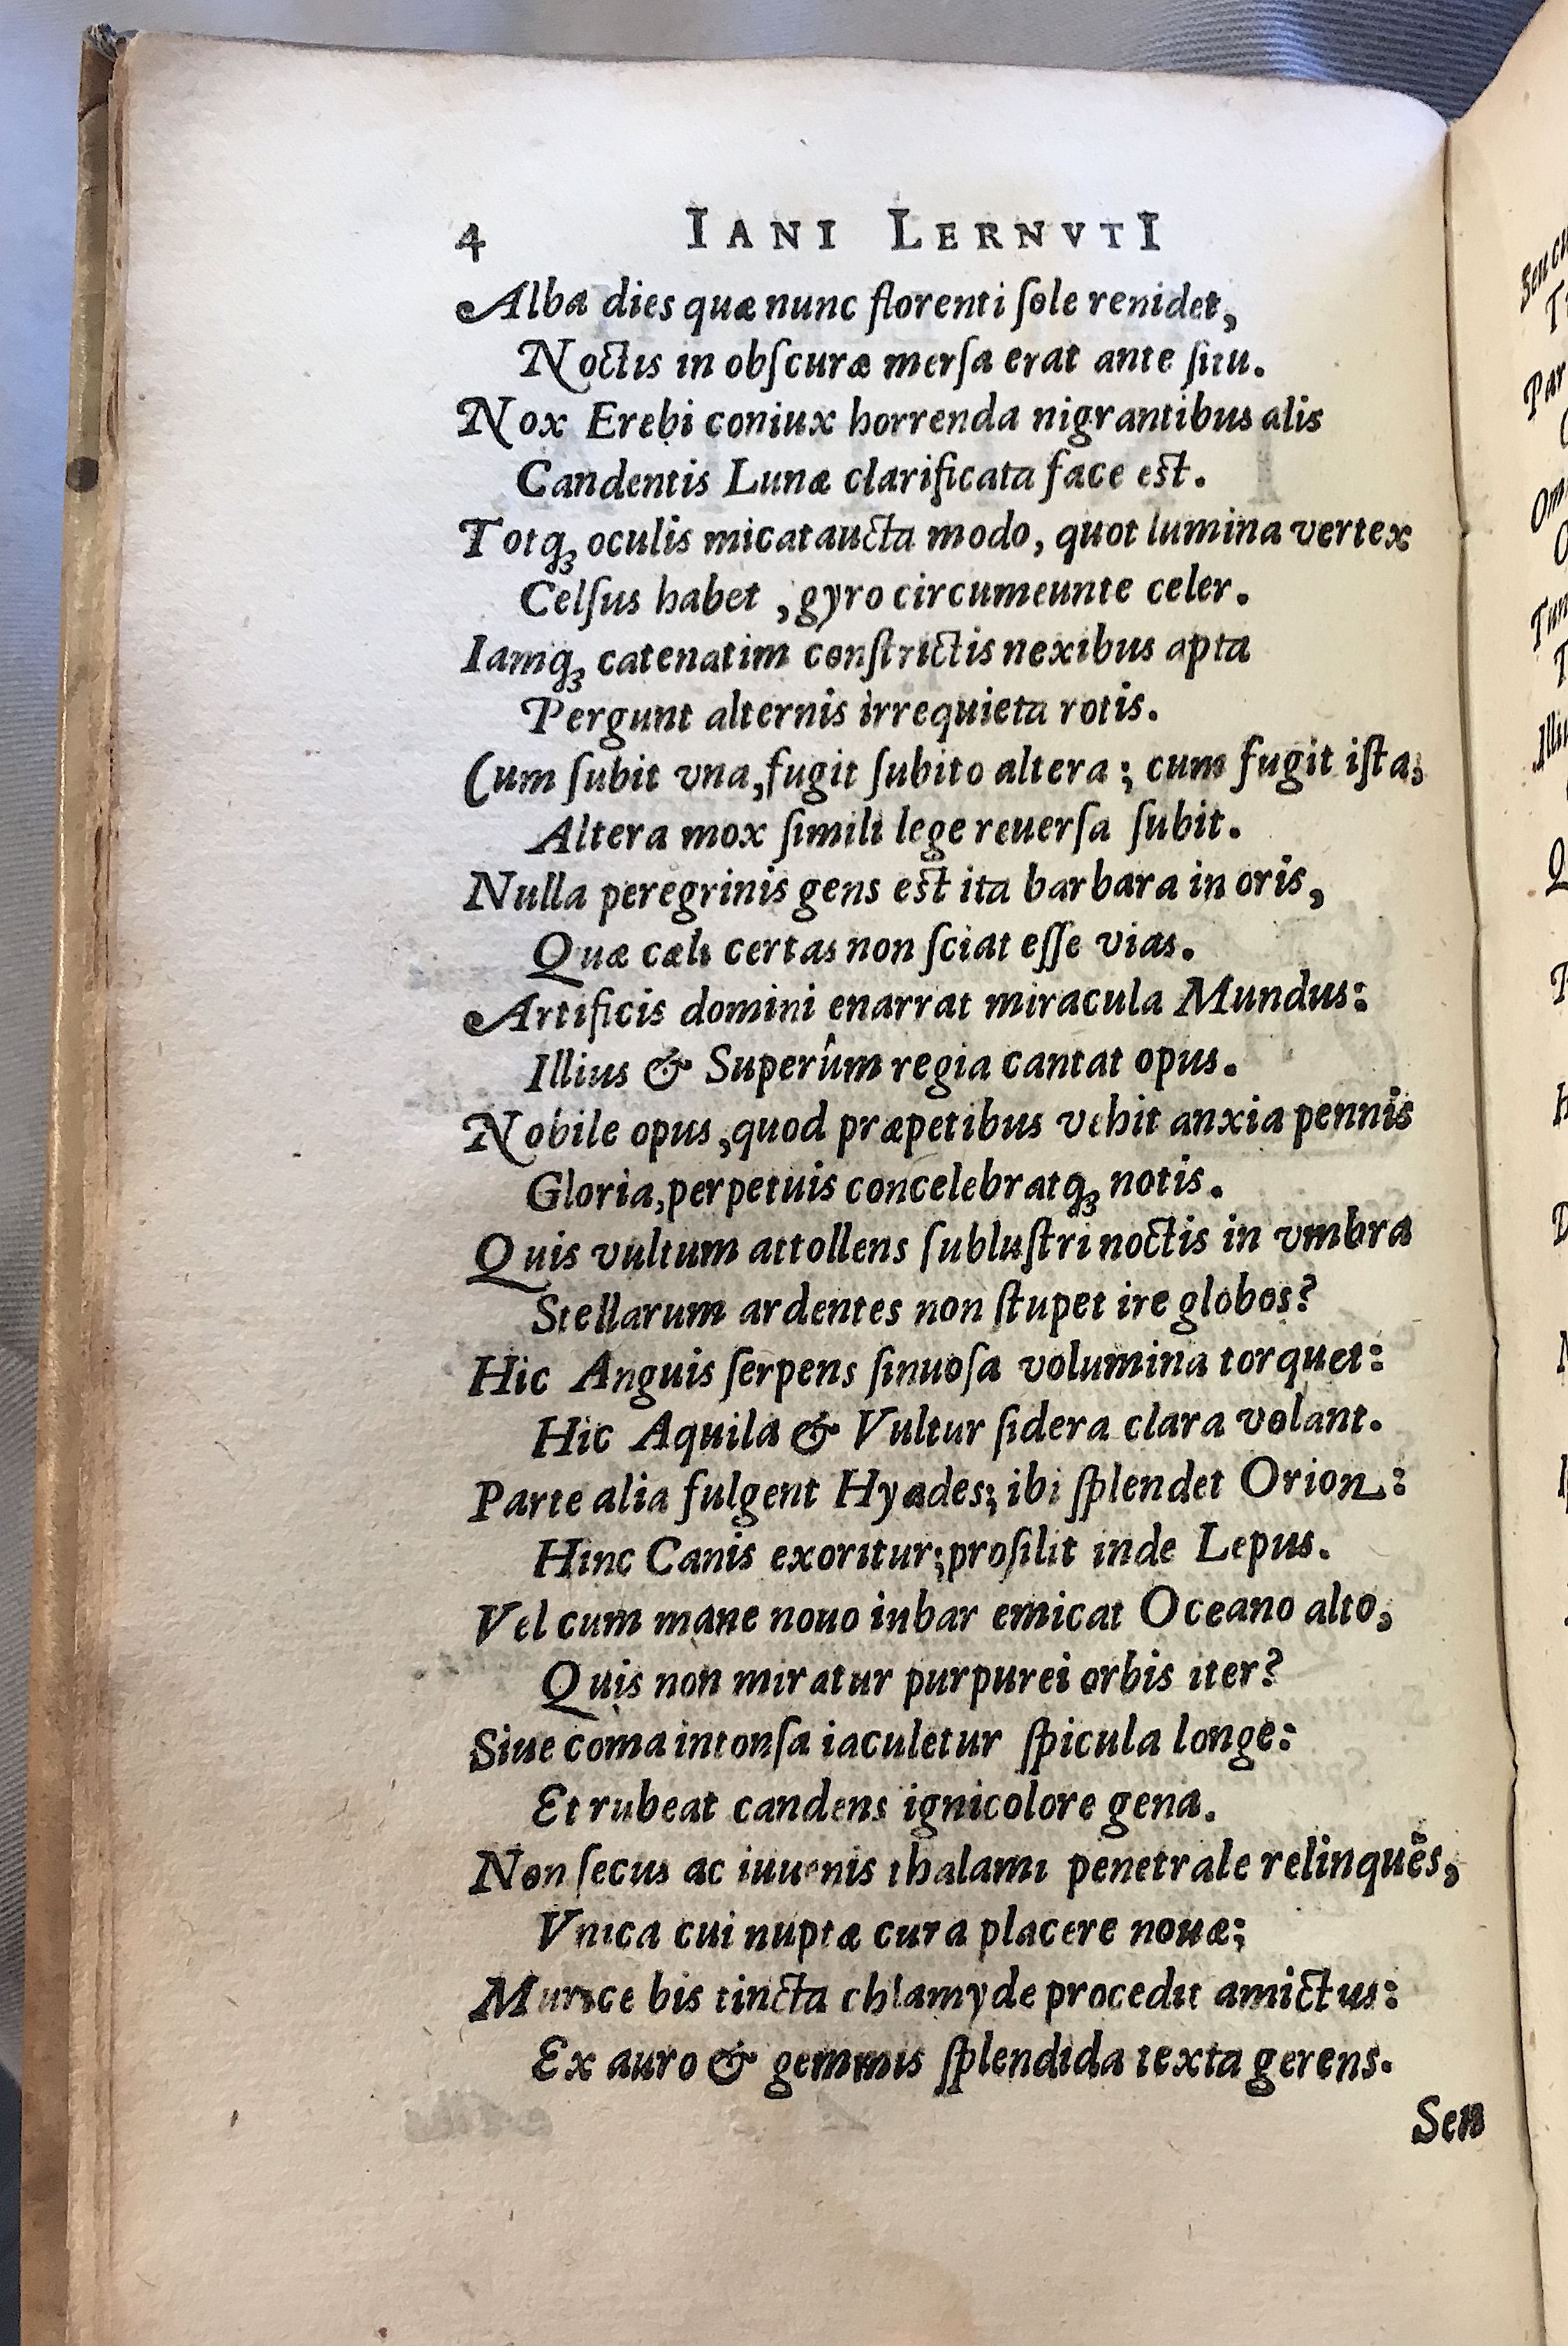 4 IANI LERNVTI
Alba dies quæ nunc florenti ſole renidet,
Noctis in obſcuræ merſa erat ante ſitu.
Nox Erebi coniux horrenda nigrantibus alis
Candentis Lunæ clarificata face est.
Totqꝫ oculis micat aucta modo, quot lumina vertex
Celſus habet, gyro circumeunte celer.
Iamqꝫ catenatim conſtrictis nexibus apta
Pergunt alternis irrequieta rotis.
Cum ſubit vna, fugit ſubito altera; cum fugit iſta,
Altera mox ſimili lege reuerſa ſubit.
Nulla peregrinis gens est ita barbara in oris,
Quæ cæli certas non ſciat eſſe vias.
Artificis domini enarrat miracula Mundus:
Illius & Superûm regia cantat opus.
Nobile opus, quod præpetibus vehit anxia pennis
Gloria, perpetuis concelebratqꝫ notis.
Quis vultum attollens ſubluſtri noctis in vmbra
Stellarum ardentes non ſtupet ire globos?
Hic Anguis ſerpens ſinuoſa volumina torquet:
Hic Aquila & Vultur ſidera clara volant.
Parte alia fulgent Hyades; ibi ſplendet Orion:
Hinc Canis exoritur; proſilit inde Lepus.
Vel cum mane nouo iubar emicat Oceano alto,
Quis non miratur purpurei orbis iter?
Siue coma intonſa iaculetur ſpicula longe:
Et rubeat candens ignicolore gena.
Non ſecus ac iuuenis thalami penetrale relinquẽs,
Vnica cui nuptæ cura placere nouæ;
Murice bis tincta chlamyde procedit amictus:
Ex auro & gemmis ſplendida texta gerens.
Seu